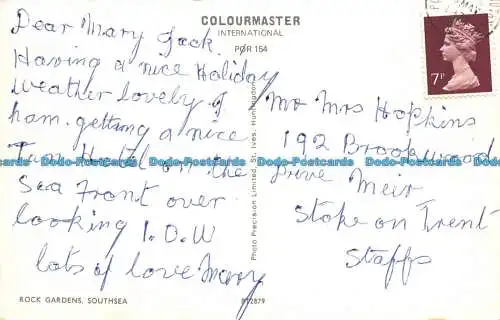 COLOURMASTER
INTERNATIONAL
POR 154
Dear Mary Jack
Having a nice Holiday
Weather lovely I
ham. getting a nice
Tan Hotel on the
Sea Front over
looking I.O.W
lots of love Mary
Mr Mrs Hopkins
192 Brookwood
Drive Meir
Stoke on Trent
Staffs
7P
Photo Precision Limited, St. Ives, Huntingdon
ROCK GARDENS, SOUTHSEA
Dodo-Postcards Dodo-Postcards Dodo-Postcards Dodo-Postcards Dodo-Postcards